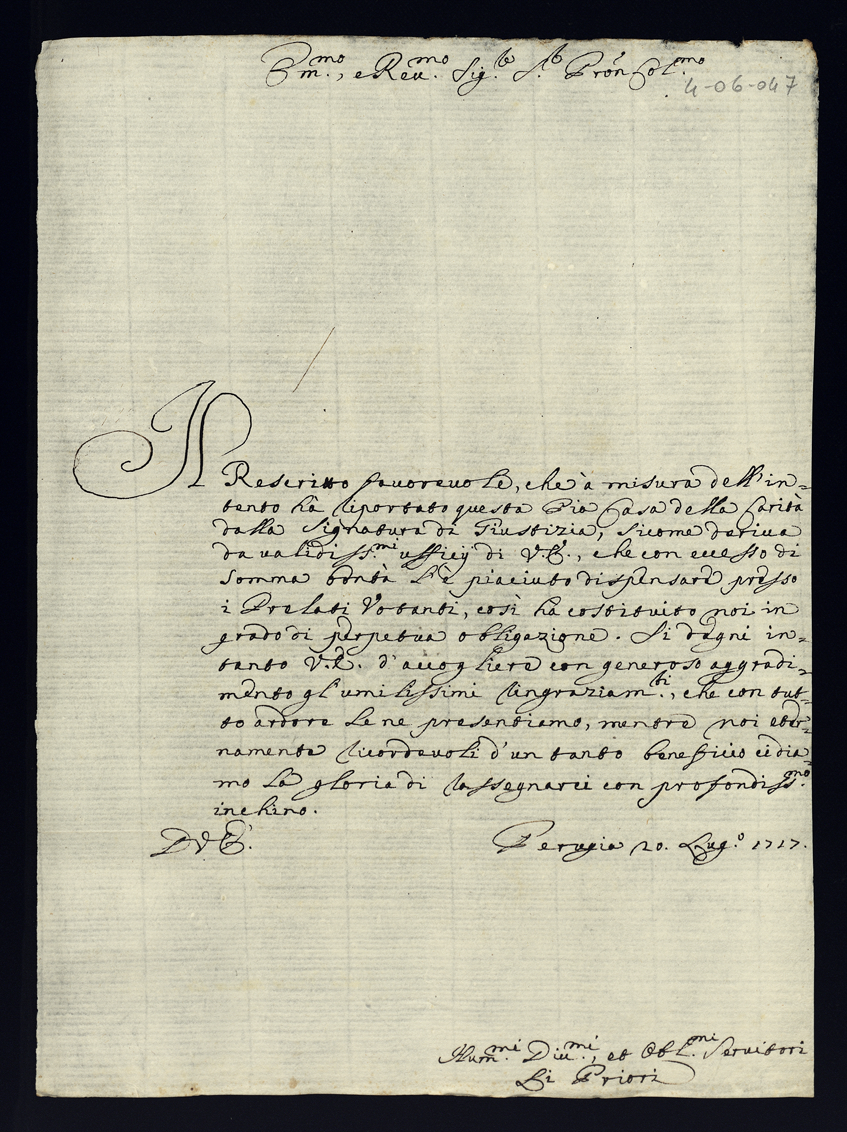 Em.mo, e Reu.mo Sig.re S.re Pron Col.mo
4-06-047
Il Rescritto fauoreuole, che à misura dell'in=
tento hà riportato questa Pia Casa della Carità
dalla Signatura di Giustizia, sicome deriua
da validiss.mi ufficij di V.E., che con eccesso di
somma bontà l'è piaciuto dispensare presso
i Prelati Votanti, così ha costituito noi in
grado di perpetua obligazione. Si degni in=
tanto V.E. d'accogliere con generoso aggradi=
mento gl'umilissimi ringraziam.ti, che con tut=
to ardore le ne presentiamo, mentre noi eter=
namente ricordeuoli d'un tanto beneficio ci dia=
mo la gloria di rassegnarci con profondiss.mo
inchino.
D V.E.
Perugia 20. Lug.o 1717.
Hum.mi Diu.mi, et Obl.mi Seruitori
Li Priori